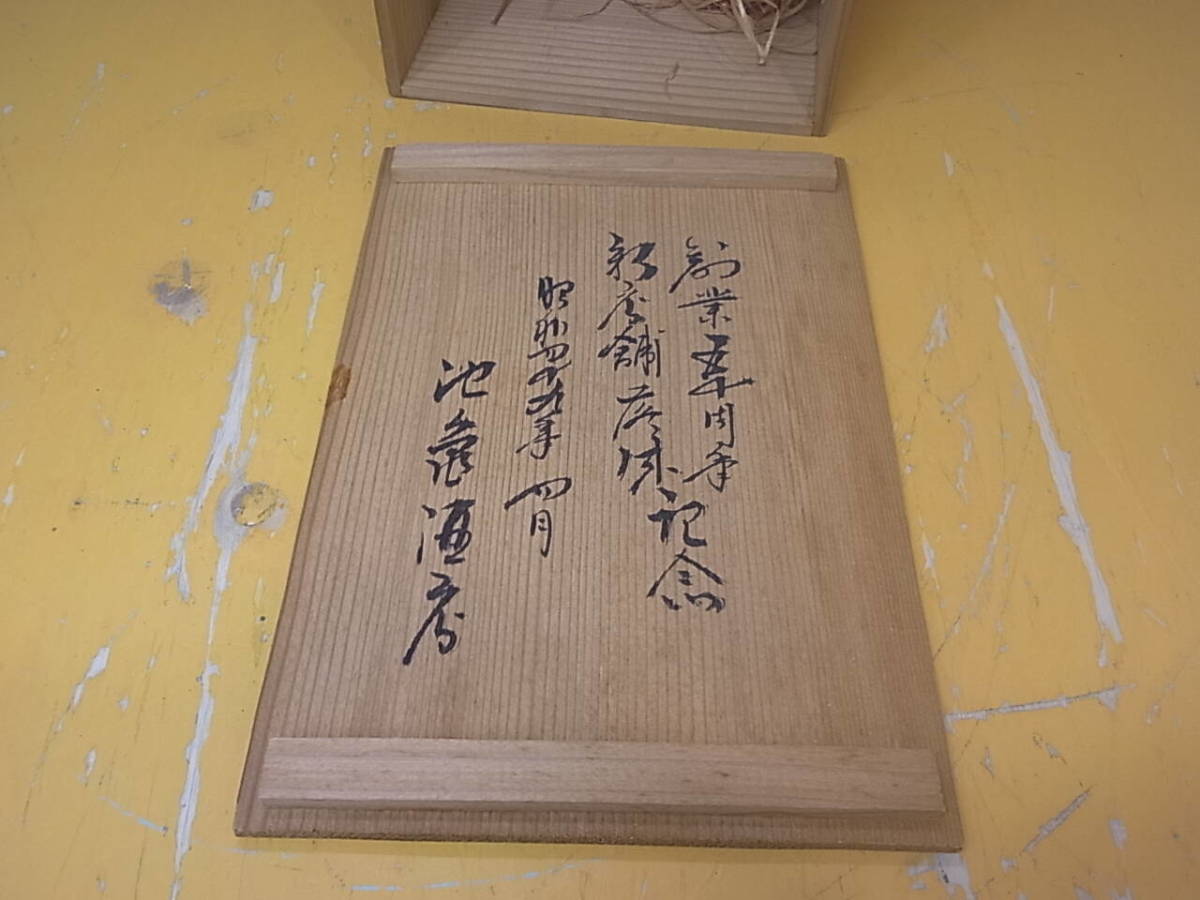 創業五十周年
新店舗落成記念
昭和四十九年四月
池亀酒店